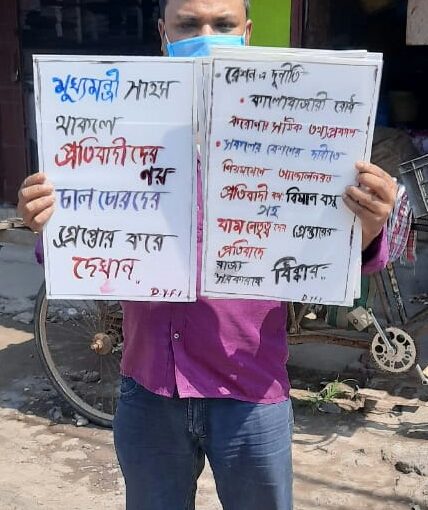 মুখ্যমন্ত্রী সাহস
থাকলে
প্রতিবাদীদের
নয়
চাল চোরদের
গ্রেপ্তার করে
দেখান.
D.Y.F.I
• রেশন এ দুর্নীতি
• কালোবাজারী রোধ
করোনার সঠিক তথ্যপ্রকাশ
• সকলের রেশনের দাবীতে
আন্দোলনরত
প্রতিবাদী কমঃ বিমান বসু
সহ
বাম নেতৃত্বদের গ্রেপ্তারের
প্রতিবাদে
রাজ্য
সরকারকে ধিক্কার..
D.Y.F.I